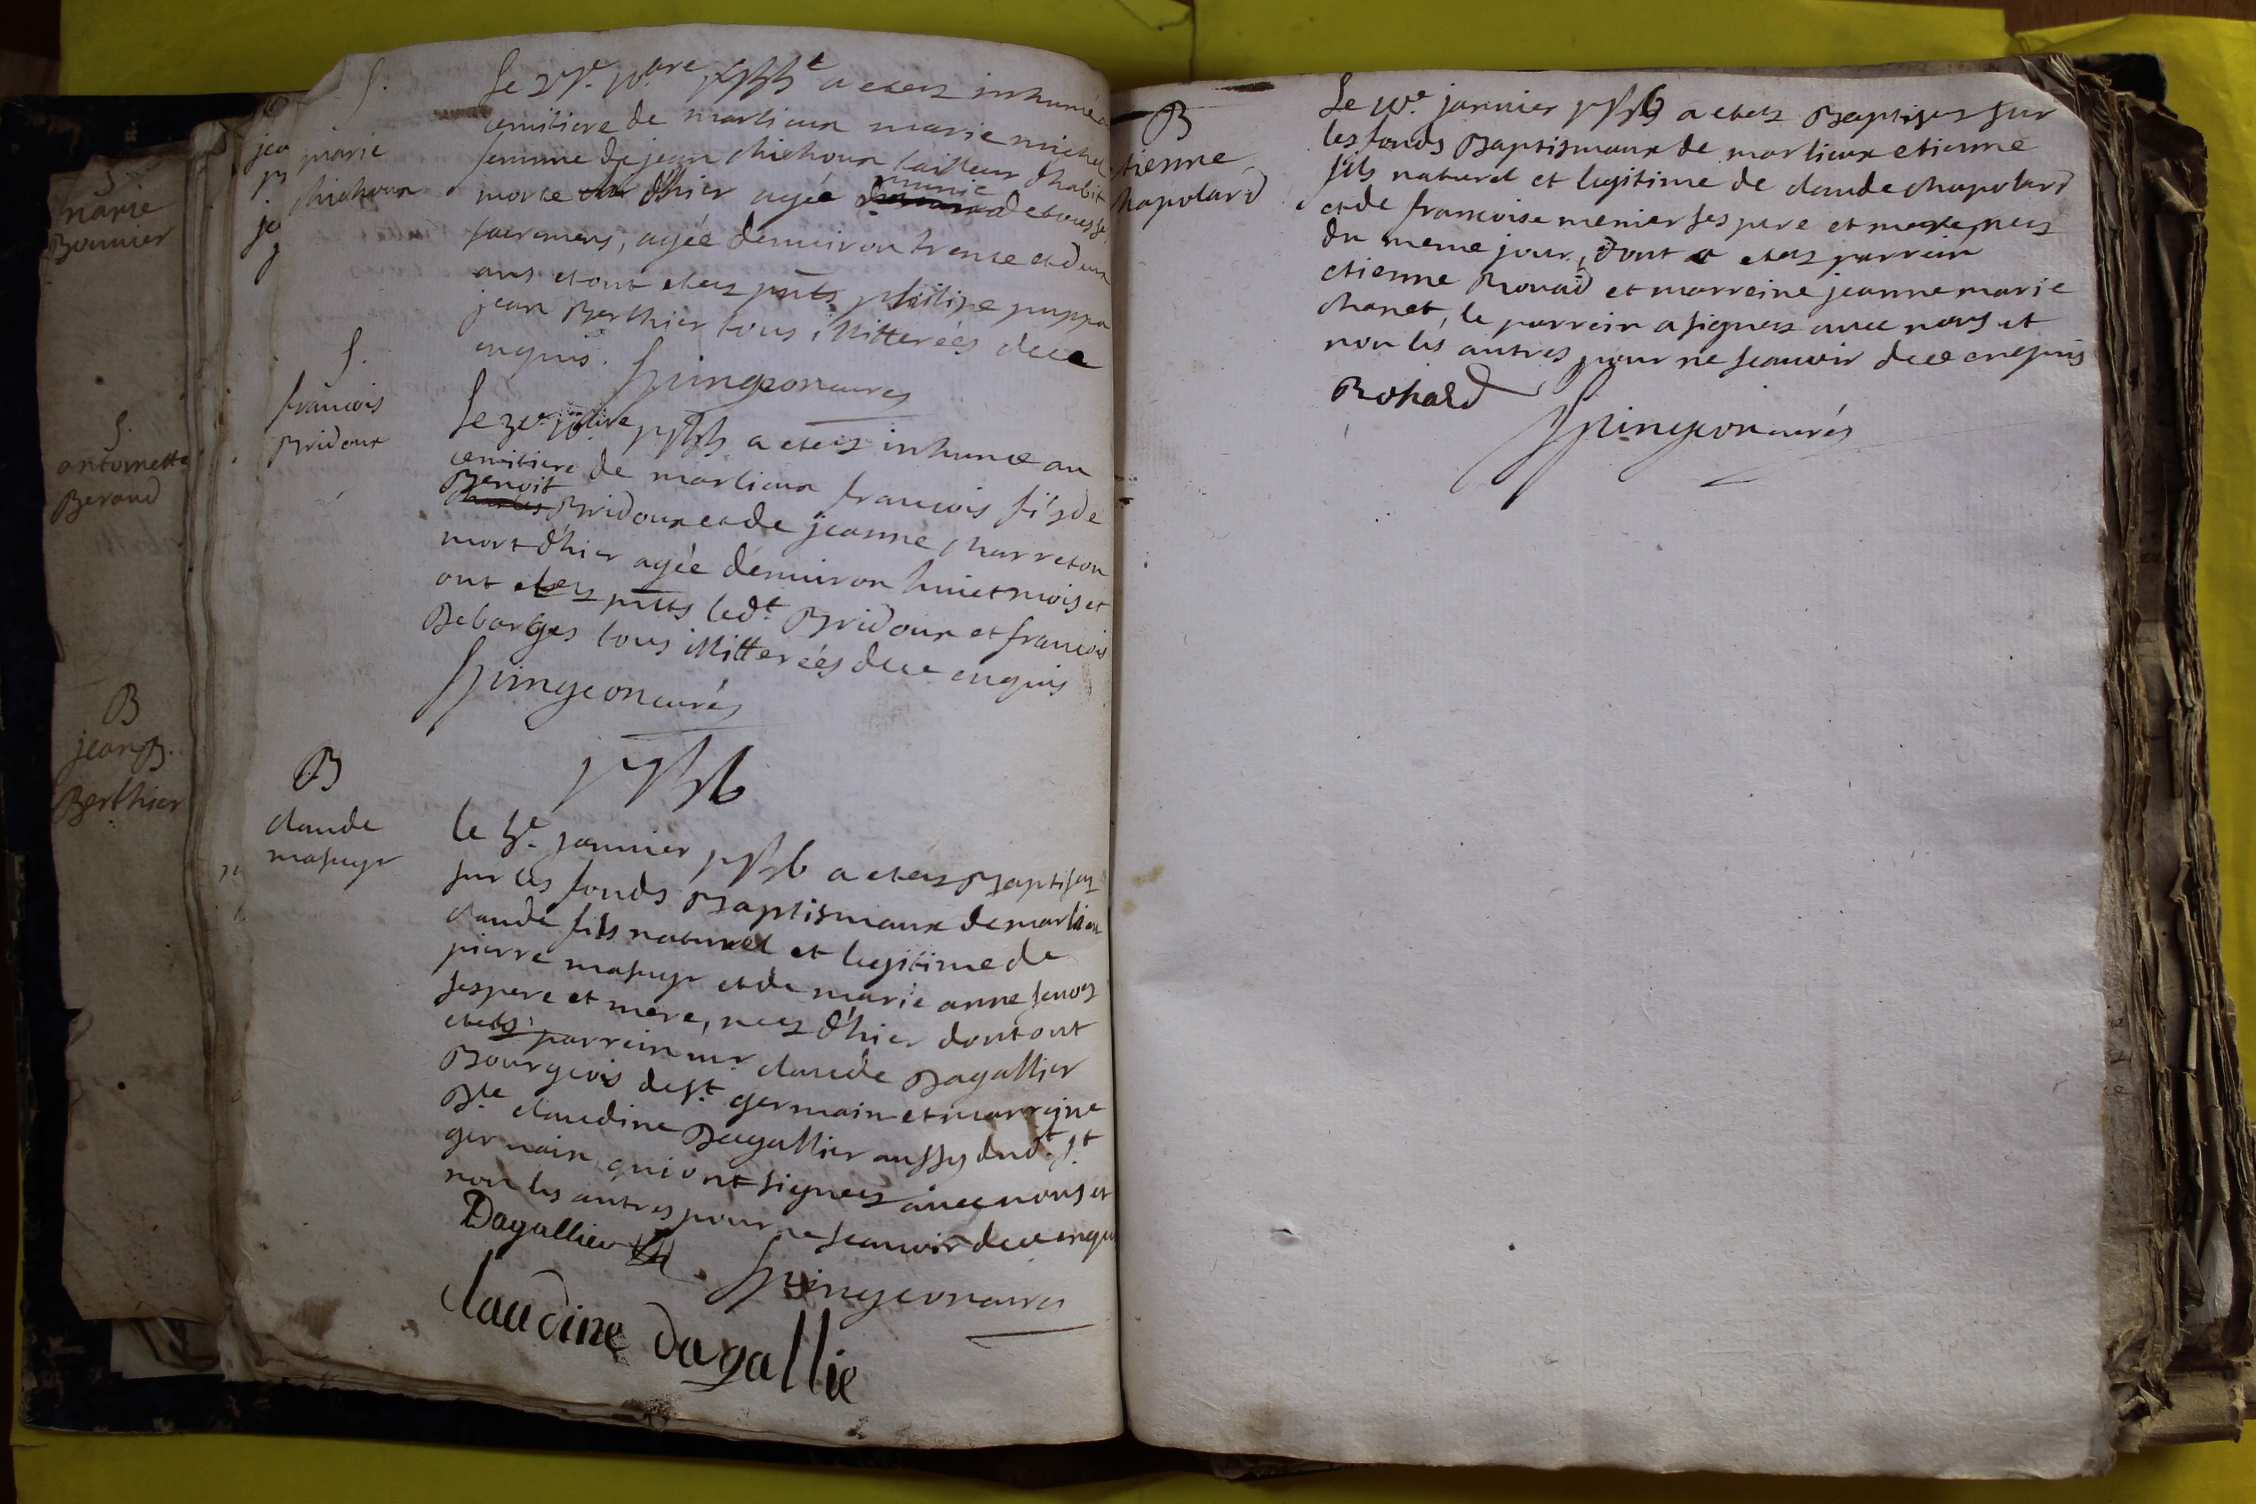 S.
marie
Bonnier
S.
antoinette
Beraud
B
jean B.
Berthier
S.
marie
chichoux
Le 27e. Xbre 1755 a etez inhumée
cemitiere de marlieux marie michel
femme de jean chichoux tailleur d'habit
morte d'hier agée munie de tous se
sacremens, agée d'enuiron trente et dun
ans et ont etez pnts philipe puppa
jean Berthier tous illitterées de ce
enquis. Spingeon curez
S.
francois
Bridoux
Le 30e. Xbre 1755 a etez inhume au
cemitiere de marlieux francois fils de
Benoit Bridoux et de jeanne charreton
mort d'hier agée d'enuiron huict mois et
ont etez pnts led.t Bridoux et francois
Debarges tous illitterées de ce enquis
Spingeon curéz
1756
B
claude
masuyr
le 5e. januier 1756 a etez Baptisez
sur les fonds Baptismaux de marlieux
claude fils naturel et legitime de
pierre masuyr et de marie anne
ses pere et mere, neez d'hier dont ont
etets parrein mr claude Dagallier
Bourgeois de st. germain et marreine
Dle claudine Dagallier aussy dud.t st
germain qui ont signez auec nous et
non les autres pour ne scauoir de ce enqui
Dagallier
Spingeon curez
Claudine dagallie
B
tienne
hapolard
Le 10e. januier 1756 a etez Baptisez sur
les fonds Baptismaux de marlieux etienne
fils naturel et legitime de claude chapolard
et de francoise menier ses pere et mere, neez
du meme jour, dont a etez parrein
etienne Rouard et marreine jeanne marie
chanet, le parrein a signez auec nous et
non les autres pour ne scauoir de ce enquis
Rohard
Spingeon curéz